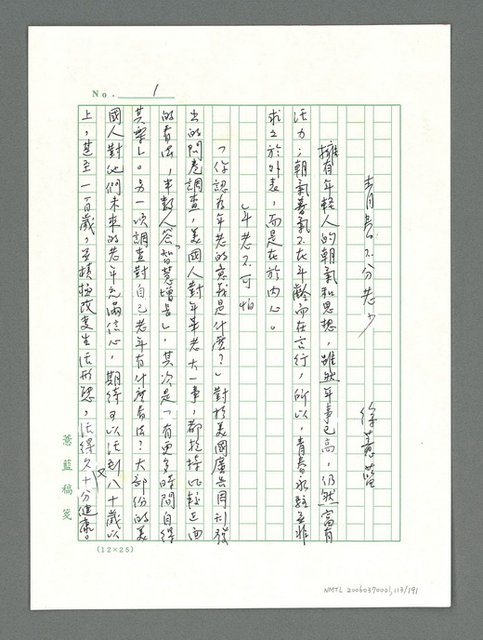 No. 1
青春不分老少
徐薏藍
擁有年輕人的朝氣和思想，雖然年事已高，仍然富有
活力；朝氣暮氣不在年齡而在言行，所以，青春永駐並非
求之於外表，而是在於內心。
年老不可怕
「你認為年老的意義是什麼？」對於美國廣告周刊發
出的問卷調查，美國人對年華老大一事，都抱持比較正面
的看法，半數人答「智慧增長」，其次是「有更多時間自得
其樂」。另一次調查對自己老年有什麼看法？大部份的美
國人對他們未來的老年充滿信心，期待可以活到八十歲以
上，甚至一百歲，並積極改變生活形態，活得久又十分健康。
薏藍稿箋
(12×25)
NMTL 20060370001, 113/191